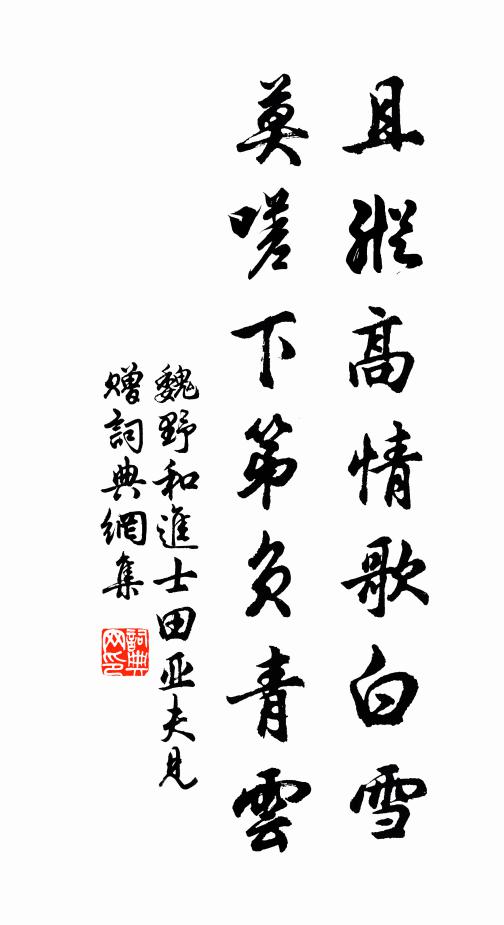 且縱高情歌白雪
莫嗟下第負青雲
魏野和進士田亚夫見
贈詞典網集
詞典
网印